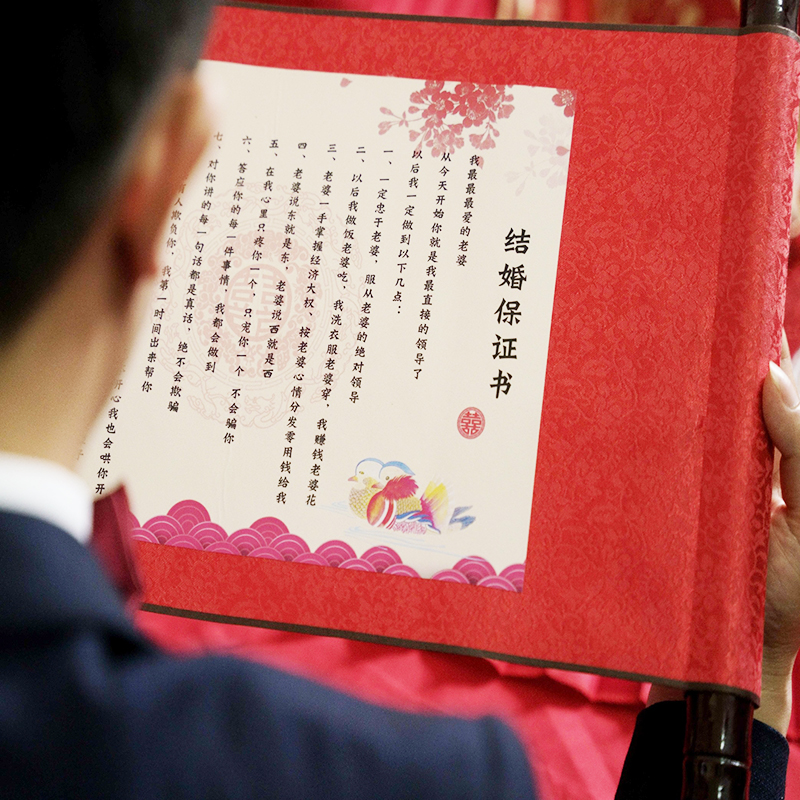 结婚保证书
囍
我最最最爱的老婆
从今天开始你就是我最直接的领导了
以后我一定做到以下几点：
一、一定忠于老婆，服从老婆的绝对领导
二、以后我做饭老婆吃，我洗衣服老婆穿，我赚钱老婆花
三、老婆一手掌握经济大权、按老婆心情分发零用钱给我
四、老婆说东就是东，老婆说西就是西
五、在我心里只疼你一个，只宠你一个 不会骗你
六、答应你的每一件事情，我都会做到
七、对你讲的每一句话都是真话，绝不会欺骗
人欺负你，我第一时间出来帮你
心我也会哄你开